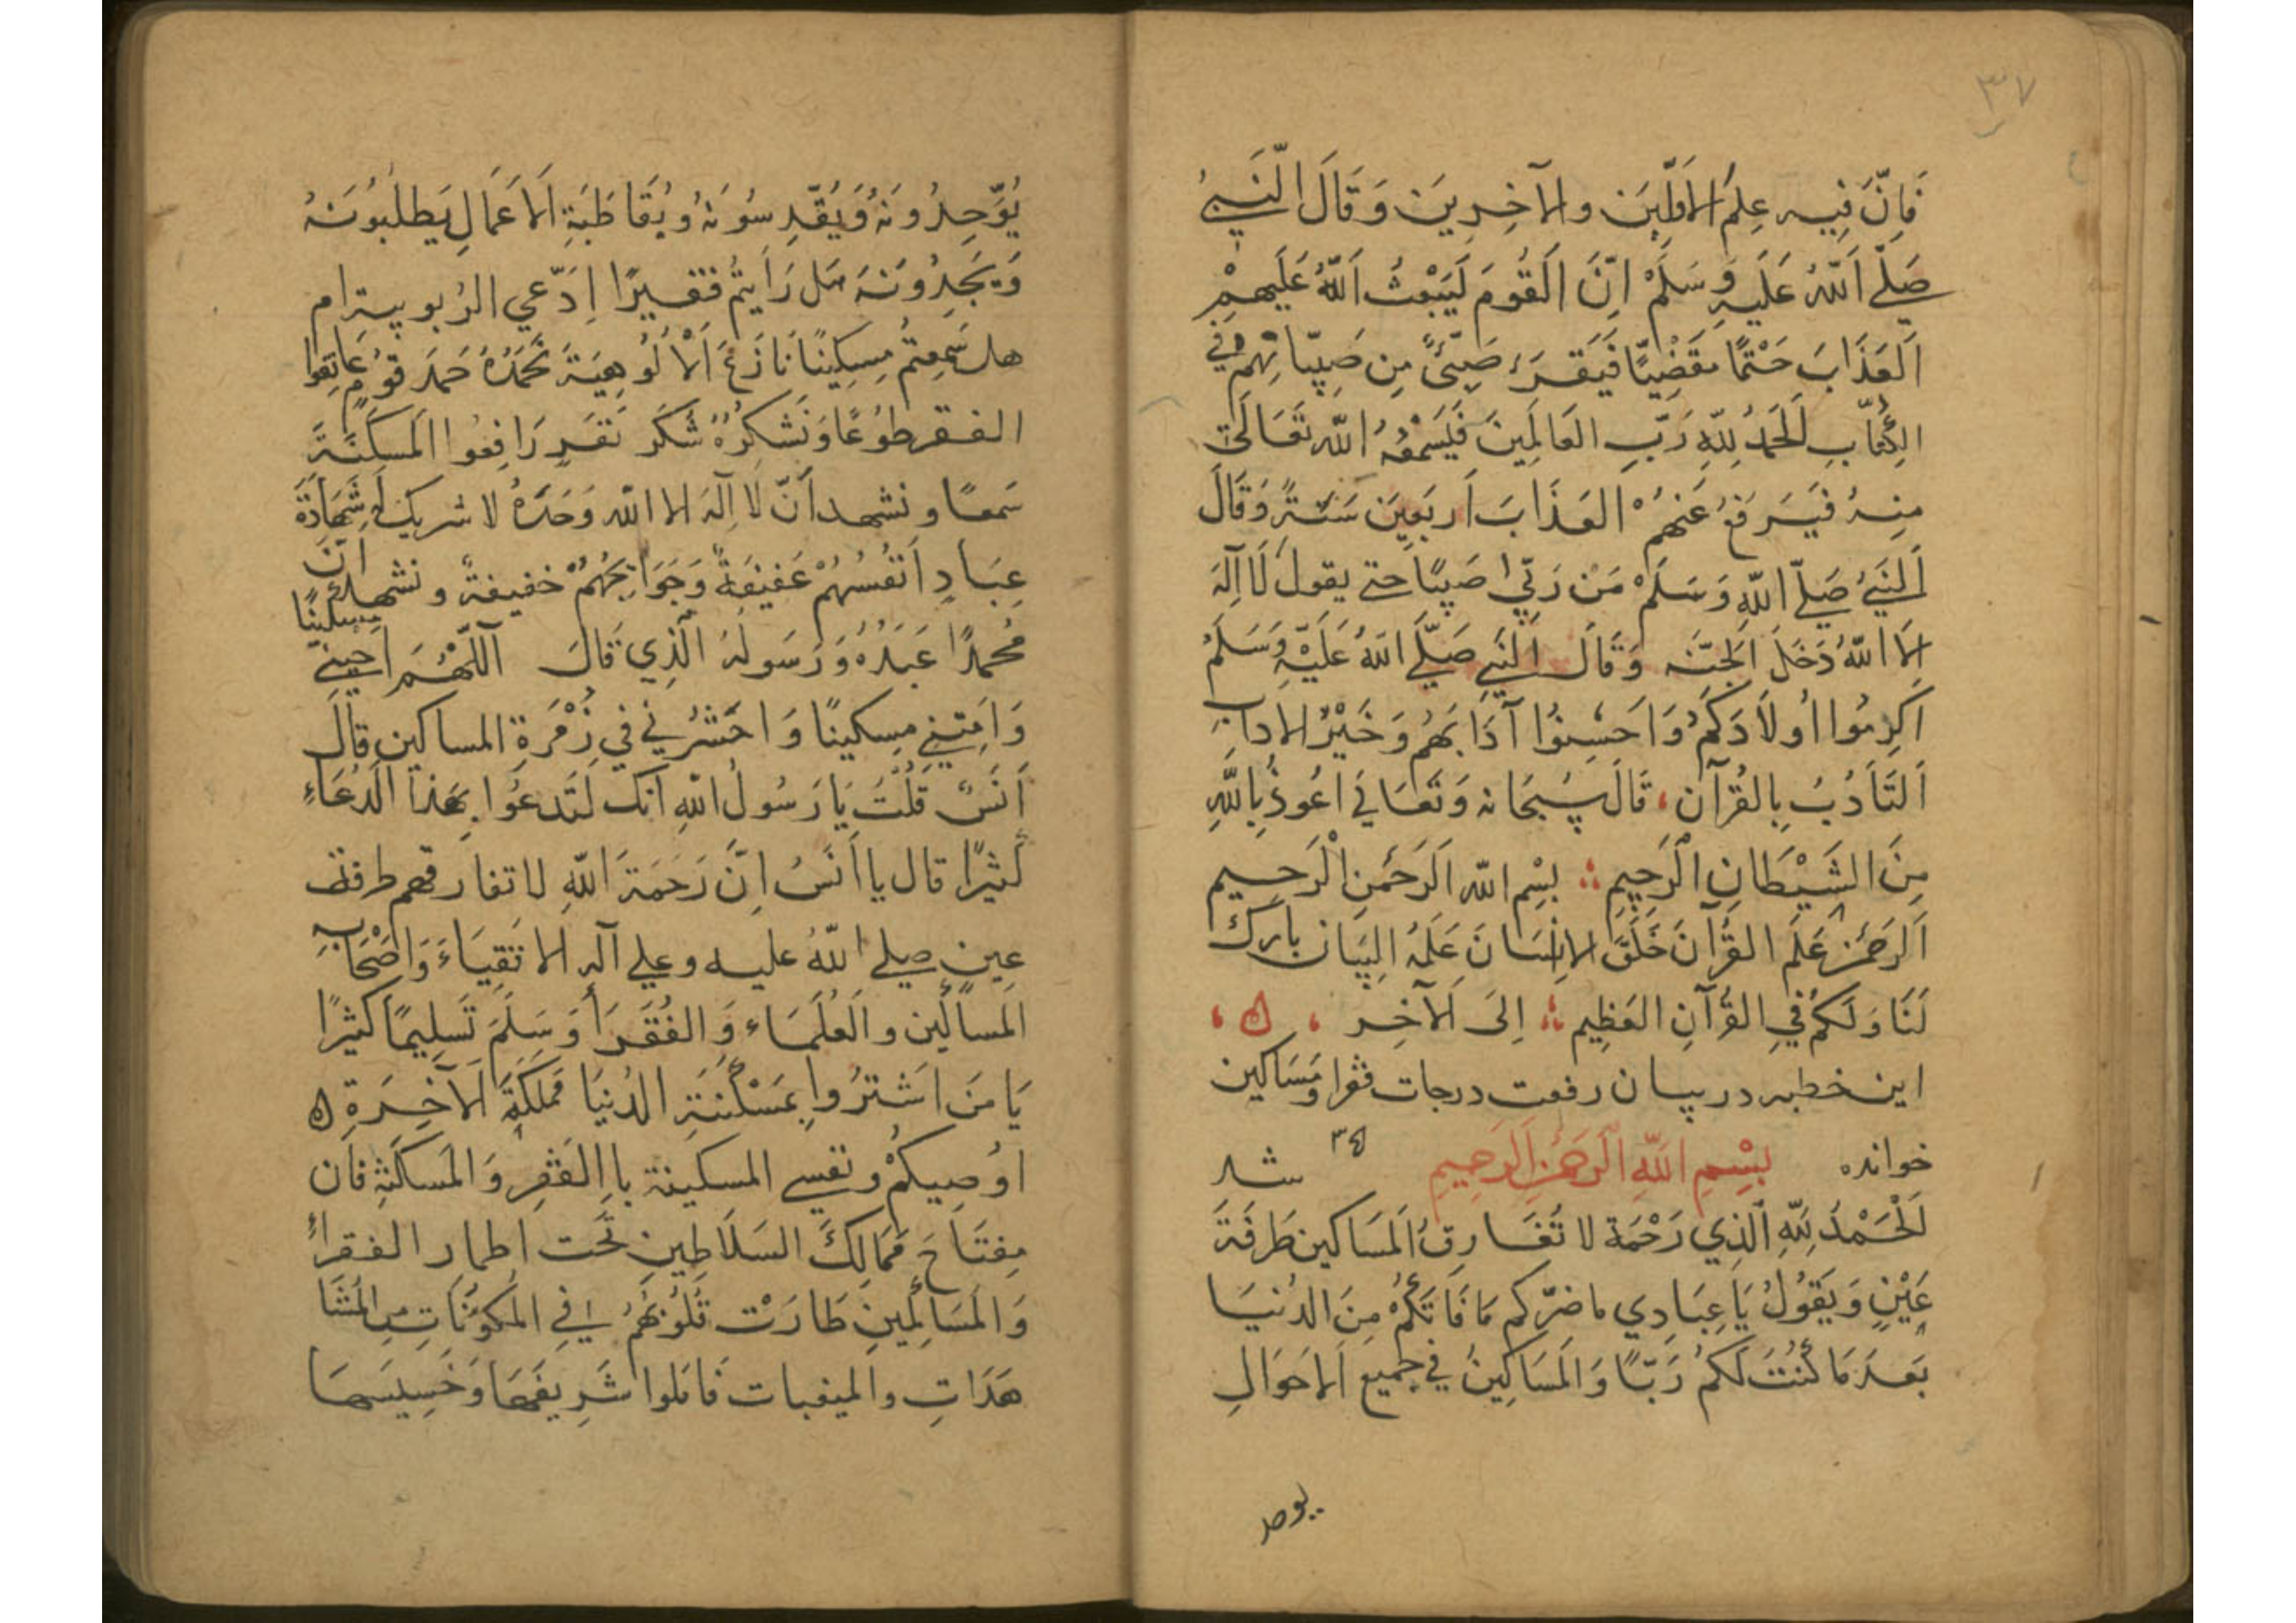 ٣٧
فَاِنَّ فِيهِ عِلمَ الاَوَّلِينَ والآخِرِينَ وَقَالَ النَّبِيُّ
صَلَّے اَللّٰهُ عَلَيهِ وَسَلَمْ اِنَّ اَلقُومَ لَيَبْعَثُ اَللّٰهُ عَلَيهِمْ
اَلعَذَابَ حَتْمًا مقَضِيًّا فَيَقرَءُ صَبِىٌّ مِن صَبِيّانِهِم فِي
الكِتَابِ اَلحَمدُ لِلّهِ رَبِّ العَالَمِينَ فَيَسَمْعُهُ اللّه تَعَالَى
مِنهُ فَيَرفَعُ عَنهُمْ العَذَابَ اَربَعِينَ سَنَةً وَقَالَ
اَلنَبِيُ صَلّے اللّهِ وَسَلَمْ مَنْ رَبّي صَبِيًا حتى يقول لَا اِلَهَ
اِلَا اللّهُ دَخَلَ اَلجَنَّه وَقَالَ اَلنَبِي صَلّے اللّهُ عَلَيْهِ وَسَلَمُ
اَكرِمُوا اُولَادَكُم وَاَحَسِنُوا آدَابَهُم وَخَيْرُ الاداب
اَلتَاَدُبُ بِالقُرآنِ ، قَالَ سُبحَانه وَتَعَالي اَعُوذُ بِاللّهِ
مِنَ الشَيْطَانِ الرَجِيمِ ؛ بِسْمِ اللّه اَلرَحمنِ الْرَحِيمِ
اَلرَحمنُ عَلَمَ القُرآنَ خَلَقَ الاِنسَانَ عَلَمَهُ البَيَان بارَكَ
لَنَا وَلَكُم فِي القُرآنِ العَظِيمِ ؛ اِلَى اَلآخِر ، ن ،
اين خطبه در بيان رفعت درجات فقرا ومَسَاكين
خوانده بِسْمِ اللّهِ الْرَحمنِ الرَحِيمِ ٣٤ شد
اَلْحَمْدُ لِلّهِ اَلَذِي رَحْمَة لا تُفَارِقُ اَلمَسَاكين طَرفَةَ
عَيْنٍ وَيَقُولُ يَا عِبَادِي ما ضرّكم مَا فَاتَكُمْ مِنَ الدُنيَا
بَعدَ مَا كُنْتُ لَكُم رَبًّا وَالمَسَاكِينُ فِي جميع اَلاحَوَالِ
يوحد
يُوَّحِدُونَهُ وَيُقَّدِسُونَهُ وبُقَاطَبَةِ اَلاَعمَالِ يَطلُبُونَهُ
وَيَجِدُونَهَ هَل رَاَيتُم فقيرًا اِدَّعي الرُبوبيت ام
هل سَمِعتُم مِسكِينًا نَازَعَ اَلْاُلُوهِيَةَ نَحمَدُهُ حَمدَ قومٍ عَانِقوا
الفقر طوُعًا وَنَشكرُهُ شُكرَ نَفَرٍ رَافِعُوا المَسكَنَةَ
سَمعًا ونشهد اَنّ لَا اِلَهَ الا اللّه وَحَدَهُ لا شريك لَه شَهَادَةَ
عِبَادٍ اَنفُسُهُمْ عَفِيفَةٌ وَحَوَائِجُهُمْ خفيفةٌ ونشهد اَنَّ
مُحمدًا عَبَدُهُ وَرَسولَهُ الَّذِي قَالَ اَللّهُمَ احيني مِسكينًا
وَاَمِتنِي مِسكينًا وَاحشُرنِي فِي زُمْرَةِ المساكين قَالَ
اَنَسٌ قُلْتُ يَا رَسُولُ اللّهِ اَنك لَتَدعُوا بِهَذا الَدُعَاءِ
كَثِيرًا قال يا اَنَسُ اِنَّ رَحَمَةَ اَللّهِ لا تفارقهم طرفة
عينٍ صلے اللّهُ عليه وعلي آله الاتَقِيَاءَ وَاَصْحَابِهِ
اَلمساكين والَعُلَمَاء وَالفُقَرَا وَسَلَمَ تَسَلِيمًا كثيرًا
يَا مَنَ اشتَرُوا بِمَسْكَنَةِ الدُنيَا مَملَكَةَ اَلآخِرَةِ ن
اُوصِيكُمْ ونفسي المسكينة بِالفَقرِ وَالمَسكَنَةِ فان
مِفتَاحَ مَمَالِكَ السَلَاطين تَحت اطمار الفقراءُ
وَالمَسَاكِين طَارَتْ قُلُوبُهُم فِي المكوَنَاتِ مِن المُشَا
هَدَاتِ والمغيبات قَابَلوا شَرِيفَهَا وَخَسِيسَهَا